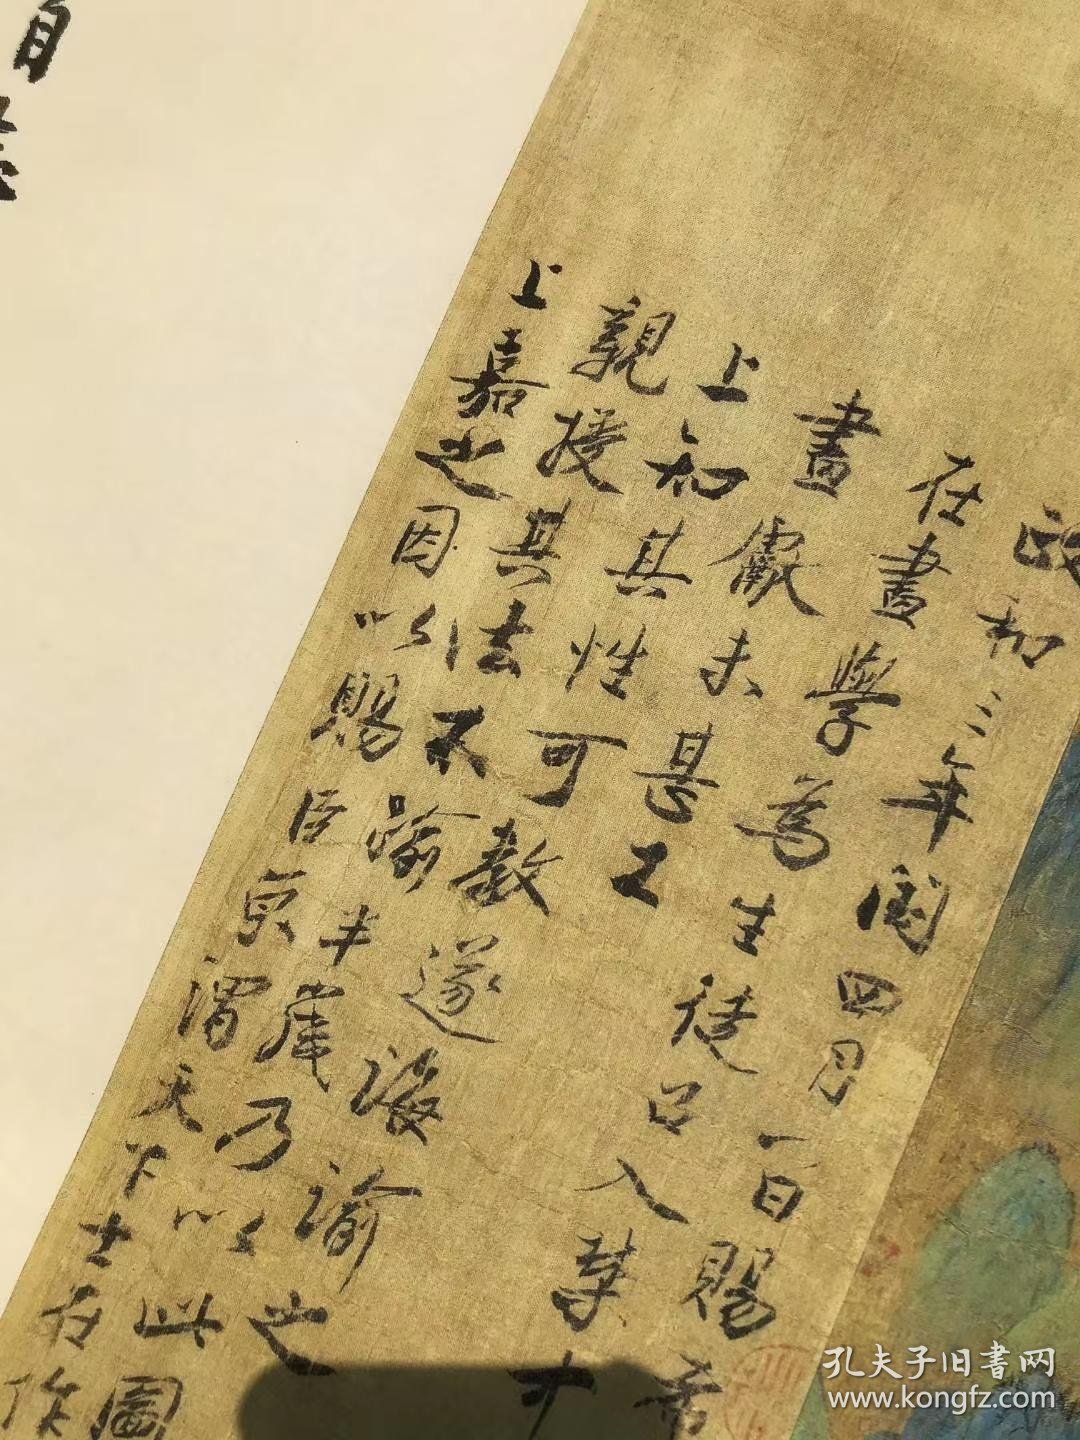 政和三年閏四月一日賜希
在畫學為生徒召入禁中
畫獻未甚工
上知其性可教遂誨諭之
親授其法不踰半歲乃以此圖
上嘉之因以賜臣京謂天下士在作
孔夫子旧書网
www.kongfz.com